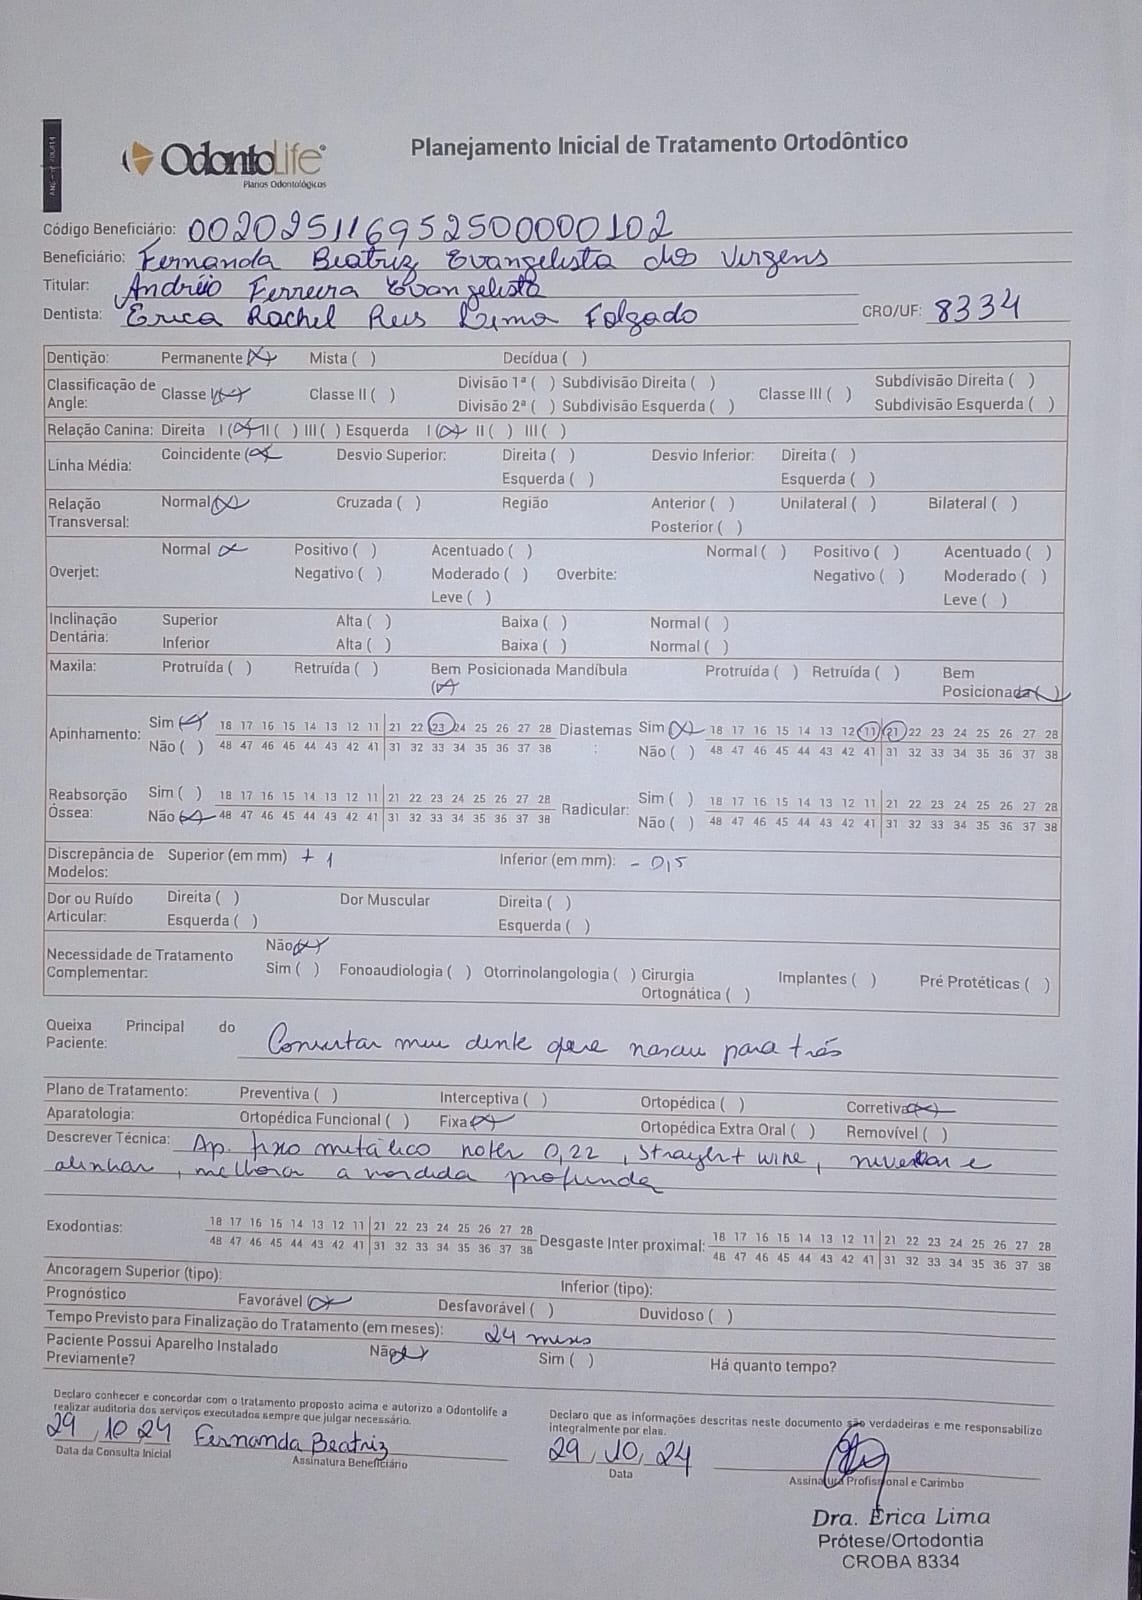 OdontoLife®
Planos Odontológicos
Planejamento Inicial de Tratamento Ortodôntico
Código Beneficiário: 002025116952500000102
Beneficiário: Fernanda Beatriz Evangelista das Virgens
Titular: Ferreira Evangelista
Dentista: Erica Rachel Reis Lima Folgado CRO/UF: 8334
Dentição: Permanente (x) Mista ( ) Decídua ( )
Classificação de Angle: Classe I (x) Classe II ( ) Divisão 1ª ( ) Subdivisão Direita ( ) Classe III ( ) Subdivisão Direita ( )
Divisão 2ª ( ) Subdivisão Esquerda ( ) Subdivisão Esquerda ( )
Relação Canina: Direita I (x) II ( ) III ( ) Esquerda I (x) II ( ) III ( )
Linha Média: Coincidente (x) Desvio Superior: Direita ( ) Desvio Inferior: Direita ( )
Esquerda ( ) Esquerda ( )
Relação Transversal: Normal (x) Cruzada ( ) Região Anterior ( ) Unilateral ( ) Bilateral ( )
Posterior ( )
Overjet: Normal x Positivo ( ) Acentuado ( ) Overbite: Normal ( ) Positivo ( ) Acentuado ( )
Negativo ( ) Moderado ( ) Negativo ( ) Moderado ( )
Leve ( ) Leve ( )
Inclinação Dentária: Superior Alta ( ) Baixa ( ) Normal ( )
Inferior Alta ( ) Baixa ( ) Normal ( )
Maxila: Protruída ( ) Retruída ( ) Bem Posicionada (x) Mandíbula Protruída ( ) Retruída ( ) Bem Posicionada (x)
Apinhamento: Sim (x) 18 17 16 15 14 13 12 11 21 22 23 24 25 26 27 28 Diastemas: Sim (x) 18 17 16 15 14 13 12 11 21 22 23 24 25 26 27 28
Não ( ) 48 47 46 45 44 43 42 41 31 32 33 34 35 36 37 38 Não ( ) 48 47 46 45 44 43 42 41 31 32 33 34 35 36 37 38
Reabsorção Óssea: Sim ( ) 18 17 16 15 14 13 12 11 21 22 23 24 25 26 27 28 Radicular: Sim ( ) 18 17 16 15 14 13 12 11 21 22 23 24 25 26 27 28
Não (x) 48 47 46 45 44 43 42 41 31 32 33 34 35 36 37 38 Não ( ) 48 47 46 45 44 43 42 41 31 32 33 34 35 36 37 38
Discrepância de Modelos: Superior (em mm) + 1 Inferior (em mm): - 0,5
Dor ou Ruído Articular: Direita ( ) Dor Muscular Direita ( )
Esquerda ( ) Esquerda ( )
Necessidade de Tratamento Complementar: Não (x)
Sim ( ) Fonoaudiologia ( ) Otorrinolangologia ( ) Cirurgia Ortognática ( ) Implantes ( ) Pré Protéticas ( )
Queixa Principal do Paciente: meu dente que nasceu para trás
Plano de Tratamento: Preventiva ( ) Interceptiva ( ) Ortopédica ( ) Corretiva (x)
Aparatologia: Ortopédica Funcional ( ) Fixa (x) Ortopédica Extra Oral ( ) Removível ( )
Descrever Técnica: Ap. fixo metálico 0,22, e
alinhar, melhora a mordida profunda
Exodontias: 18 17 16 15 14 13 12 11 21 22 23 24 25 26 27 28 Desgaste Inter proximal: 18 17 16 15 14 13 12 11 21 22 23 24 25 26 27 28
48 47 46 45 44 43 42 41 31 32 33 34 35 36 37 38 48 47 46 45 44 43 42 41 31 32 33 34 35 36 37 38
Ancoragem Superior (tipo): Inferior (tipo):
Prognóstico Favorável (x) Desfavorável ( ) Duvidoso ( )
Tempo Previsto para Finalização do Tratamento (em meses): 24 meses
Paciente Possui Aparelho Instalado Previamente? Não (x) Sim ( ) Há quanto tempo?
Declaro conhecer e concordar com o tratamento proposto acima e autorizo a Odontolife a
realizar auditoria dos serviços executados sempre que julgar necessário.
29, 10 24 Fernanda Beatriz
Data da Consulta Inicial Assinatura Beneficiário
Declaro que as informações descritas neste documento são verdadeiras e me responsabilizo
integralmente por elas.
29, 10, 24
Data Assinatura Profissional e Carimbo
Dra. Erica Lima
Prótese/Ortodontia
CROBA 8334